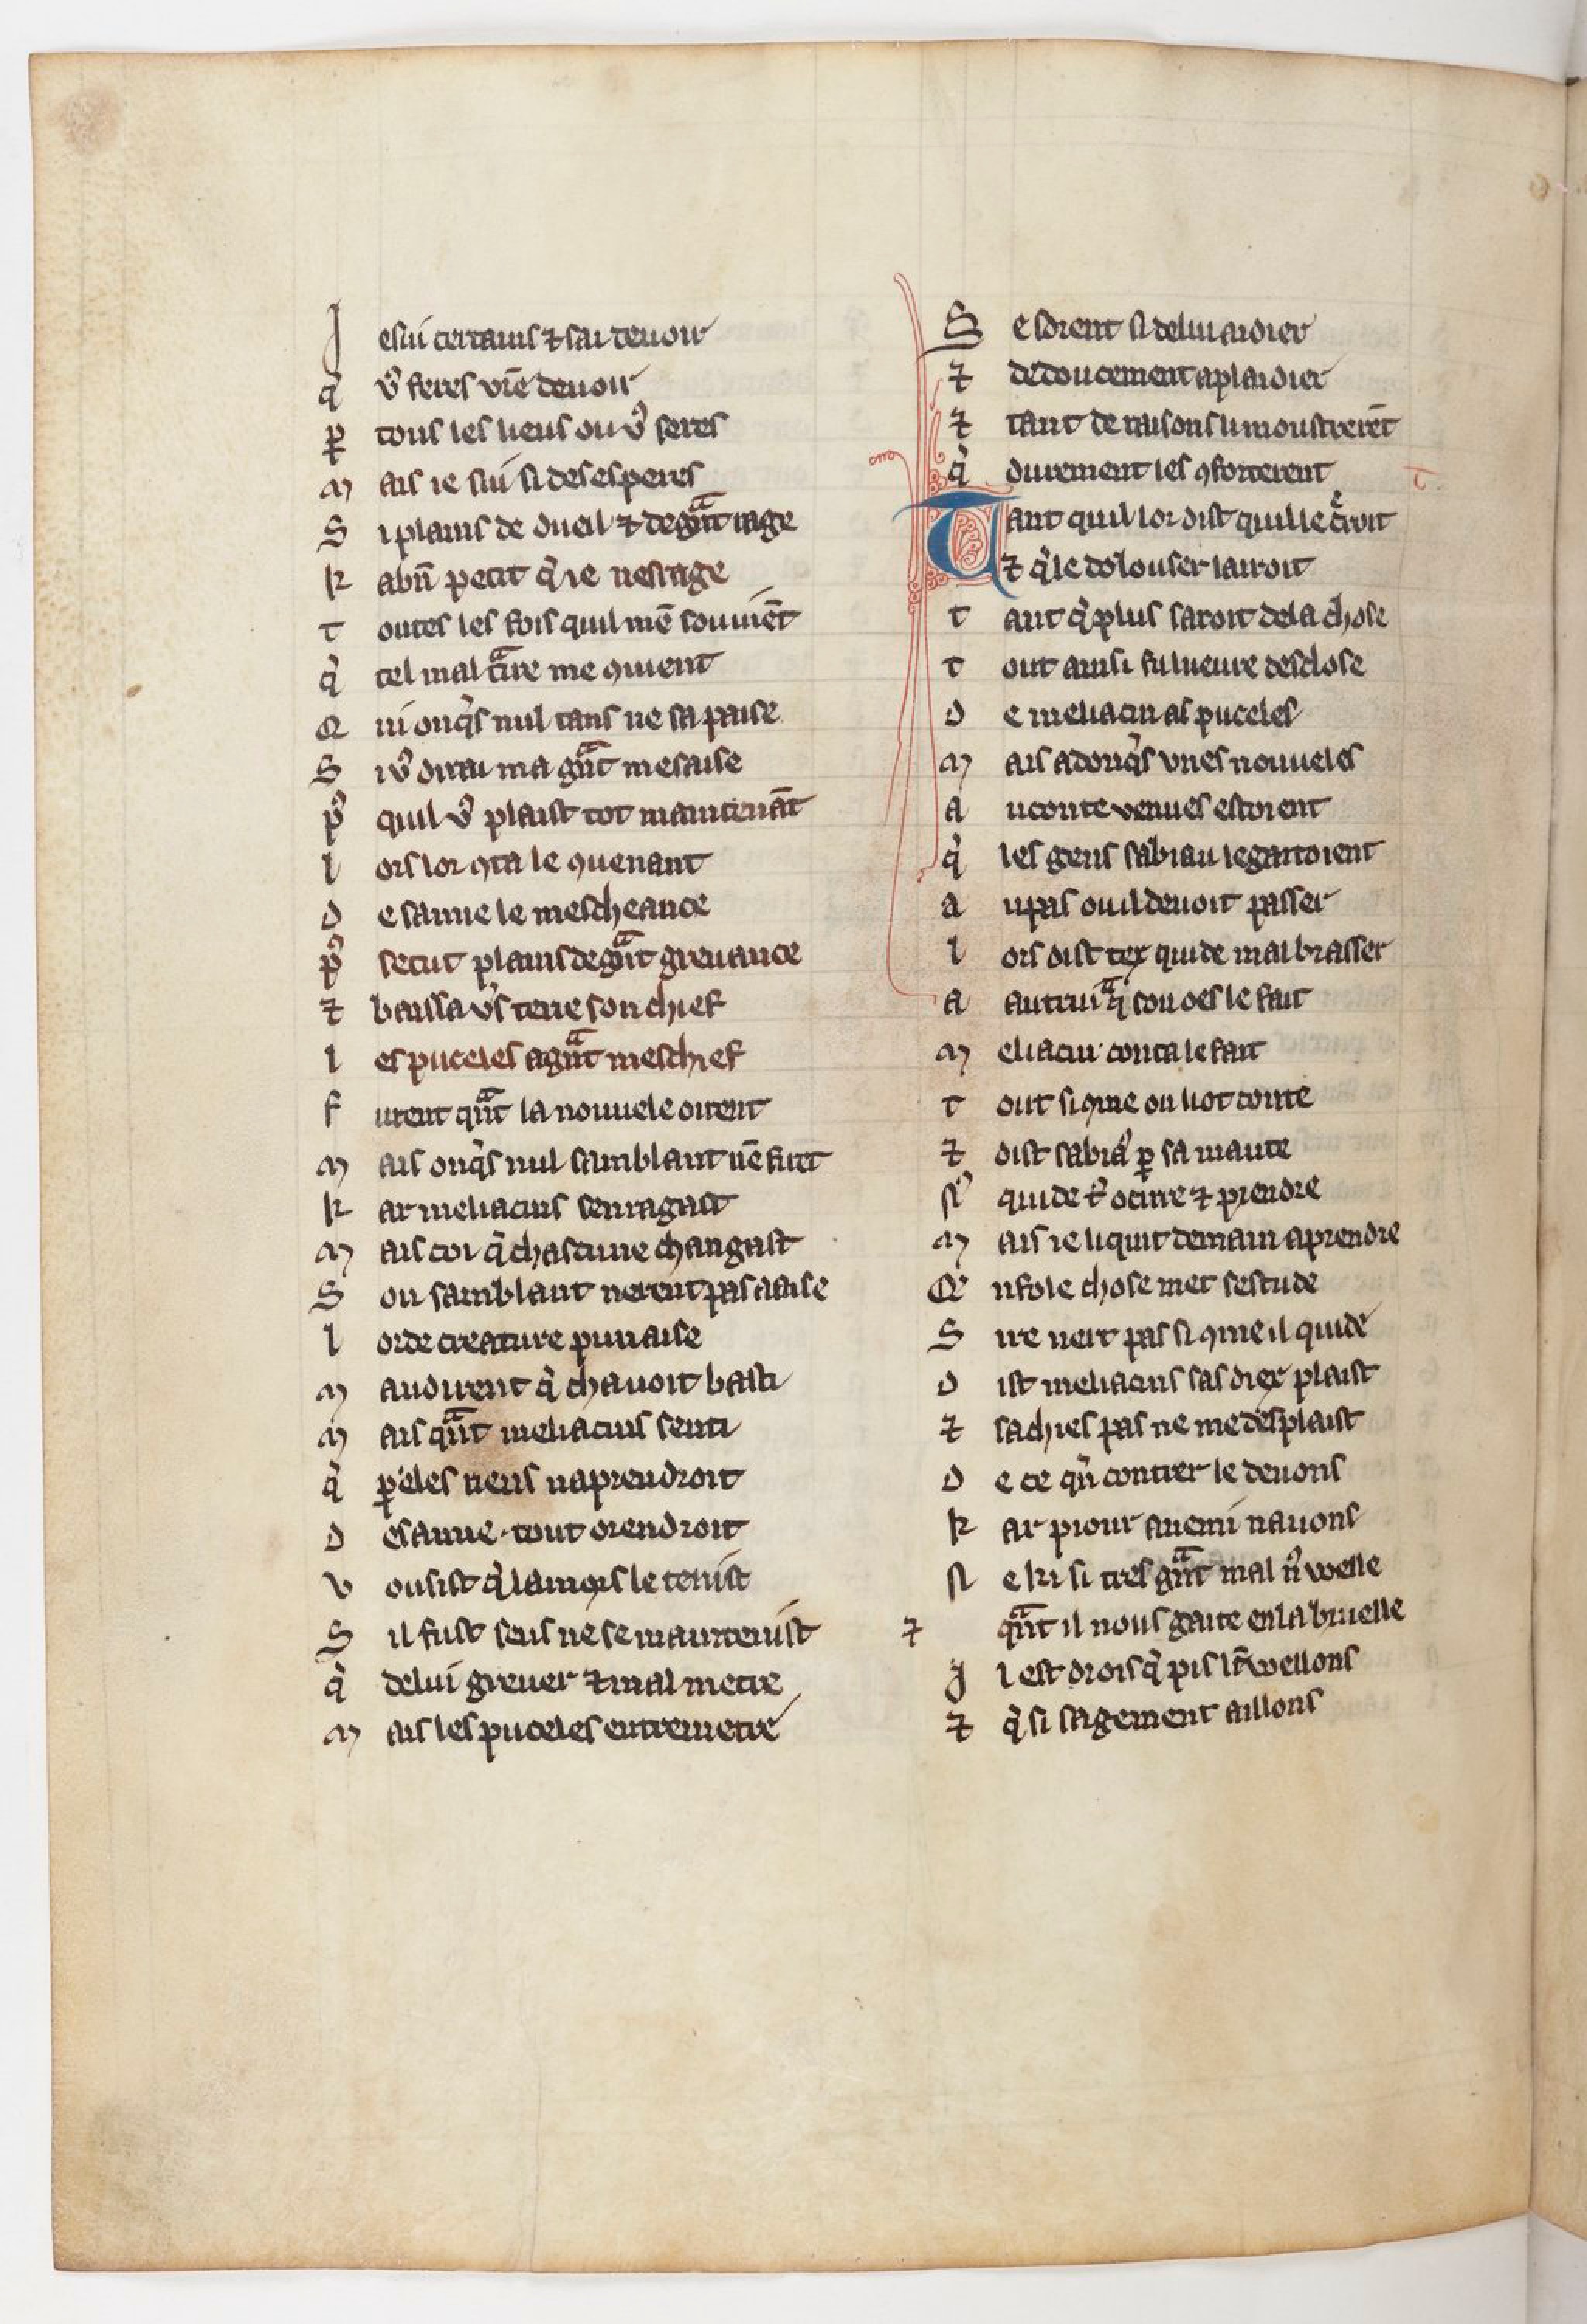 J e sui certains ⁊ sai de uoir
q̇ vꝰ feres vr̄e deuoir
ꝑ tous les lieus ou vꝰ seres
m ais ie sui si desesperes
S i plains de dueil ⁊ de gͣnt rage
k a bn̄ petit q̇ ie nesrage
t outes les fois quil mē souuiēt
q̇ tel mal tͣire me ꝯuient
Q ui onq̇s nul tans ne sapaise
S i vꝰ dirai ma gͣnt mesaise
pꝰ quil vꝰ plaist tot maintenāt
l ors lor ꝯta le ꝯuenant
D esamie le mescheance
pꝰ secut plains de gͣnt greuance
⁊ baissa vꝰs terre son chief
l es puceles a gͣnt meschief
f urent qͣnt la nouuele oirent
m ais onq̇s nul samblant nē firēt
k ar meliacins senragast
m ais coi q̇ chascune changast
S on samblant nerent pas a aise
l orde creature punaise
m audirent q̇ cha uoit basti
m ais qͣnt meliacins senti
q̇ ꝑ eles riens naprendroit
D esamie tout orendroit
v ousist q̇ la mors le tenist
S il fust seus ne se maintenist
q̇ de lui greuer ⁊ mal metre
m ais les puceles entremetre
S e sorent si de lui aidier
⁊ de doucement aplaidier
⁊ tant de raisons li moustrerēt
q̇ durement les ꝯforterent
T ant quil lor dist quil le creroit
⁊ q̇ le dolouser lairoit
t ant q̇ plus saroit de la chose
t out ainsi fu lueure desclose
D e meliacin as puceles
m ais adonq̇s vnes nouueles
a u conte venues estoient
q̇ les gens sabiau le gaitoient
a u pas ou il deuoit passer
l ors dist tex quide mal brasser
a autrui qͣ son oes le fait
m eliacin conta le fait
t out si ꝯme on li ot conte
⁊ dist sabiaꝰ ꝑ sa maute
nꝰ quide tꝰ ocirre ⁊ prendre
m ais ie li quit demain aprendre
Q̄ n fole chose met sestude
S ire nert pas si ꝯme il quide
D ist meliacins sas diex plaist
⁊ sachies pas ne me desplaist
D e ce qn̄ contrer le deuons
k ar piour anemi nauons
N e ki si tres gͣnt mal nꝰ welle
⁊ qͣnt il nous gaite en la bruelle
J l est drois q̇ pis len wellons
⁊ q̇ si sagement aillons